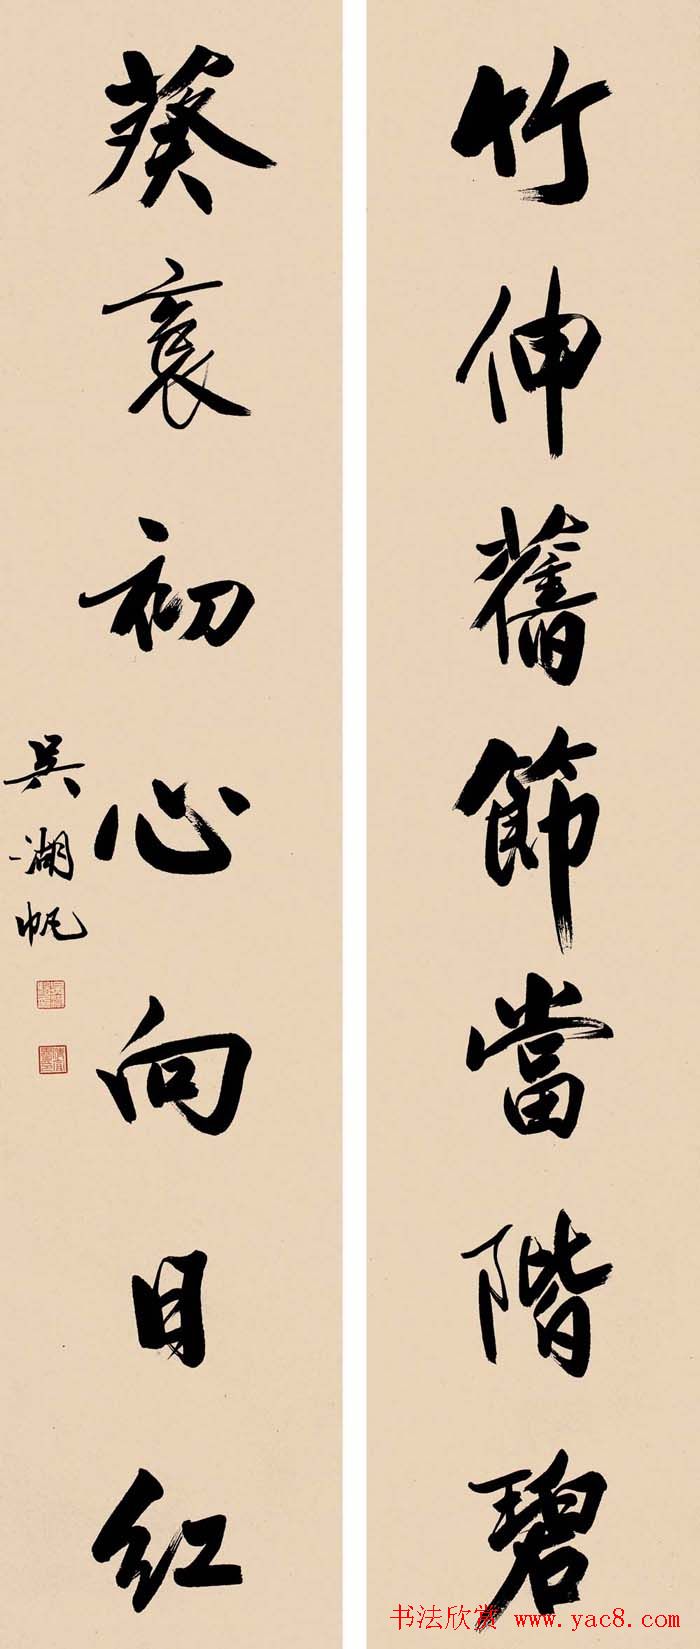 竹伸舊節當階碧
葵褱初心向日紅
吳湖帆
书法欣赏 www.yac8.com